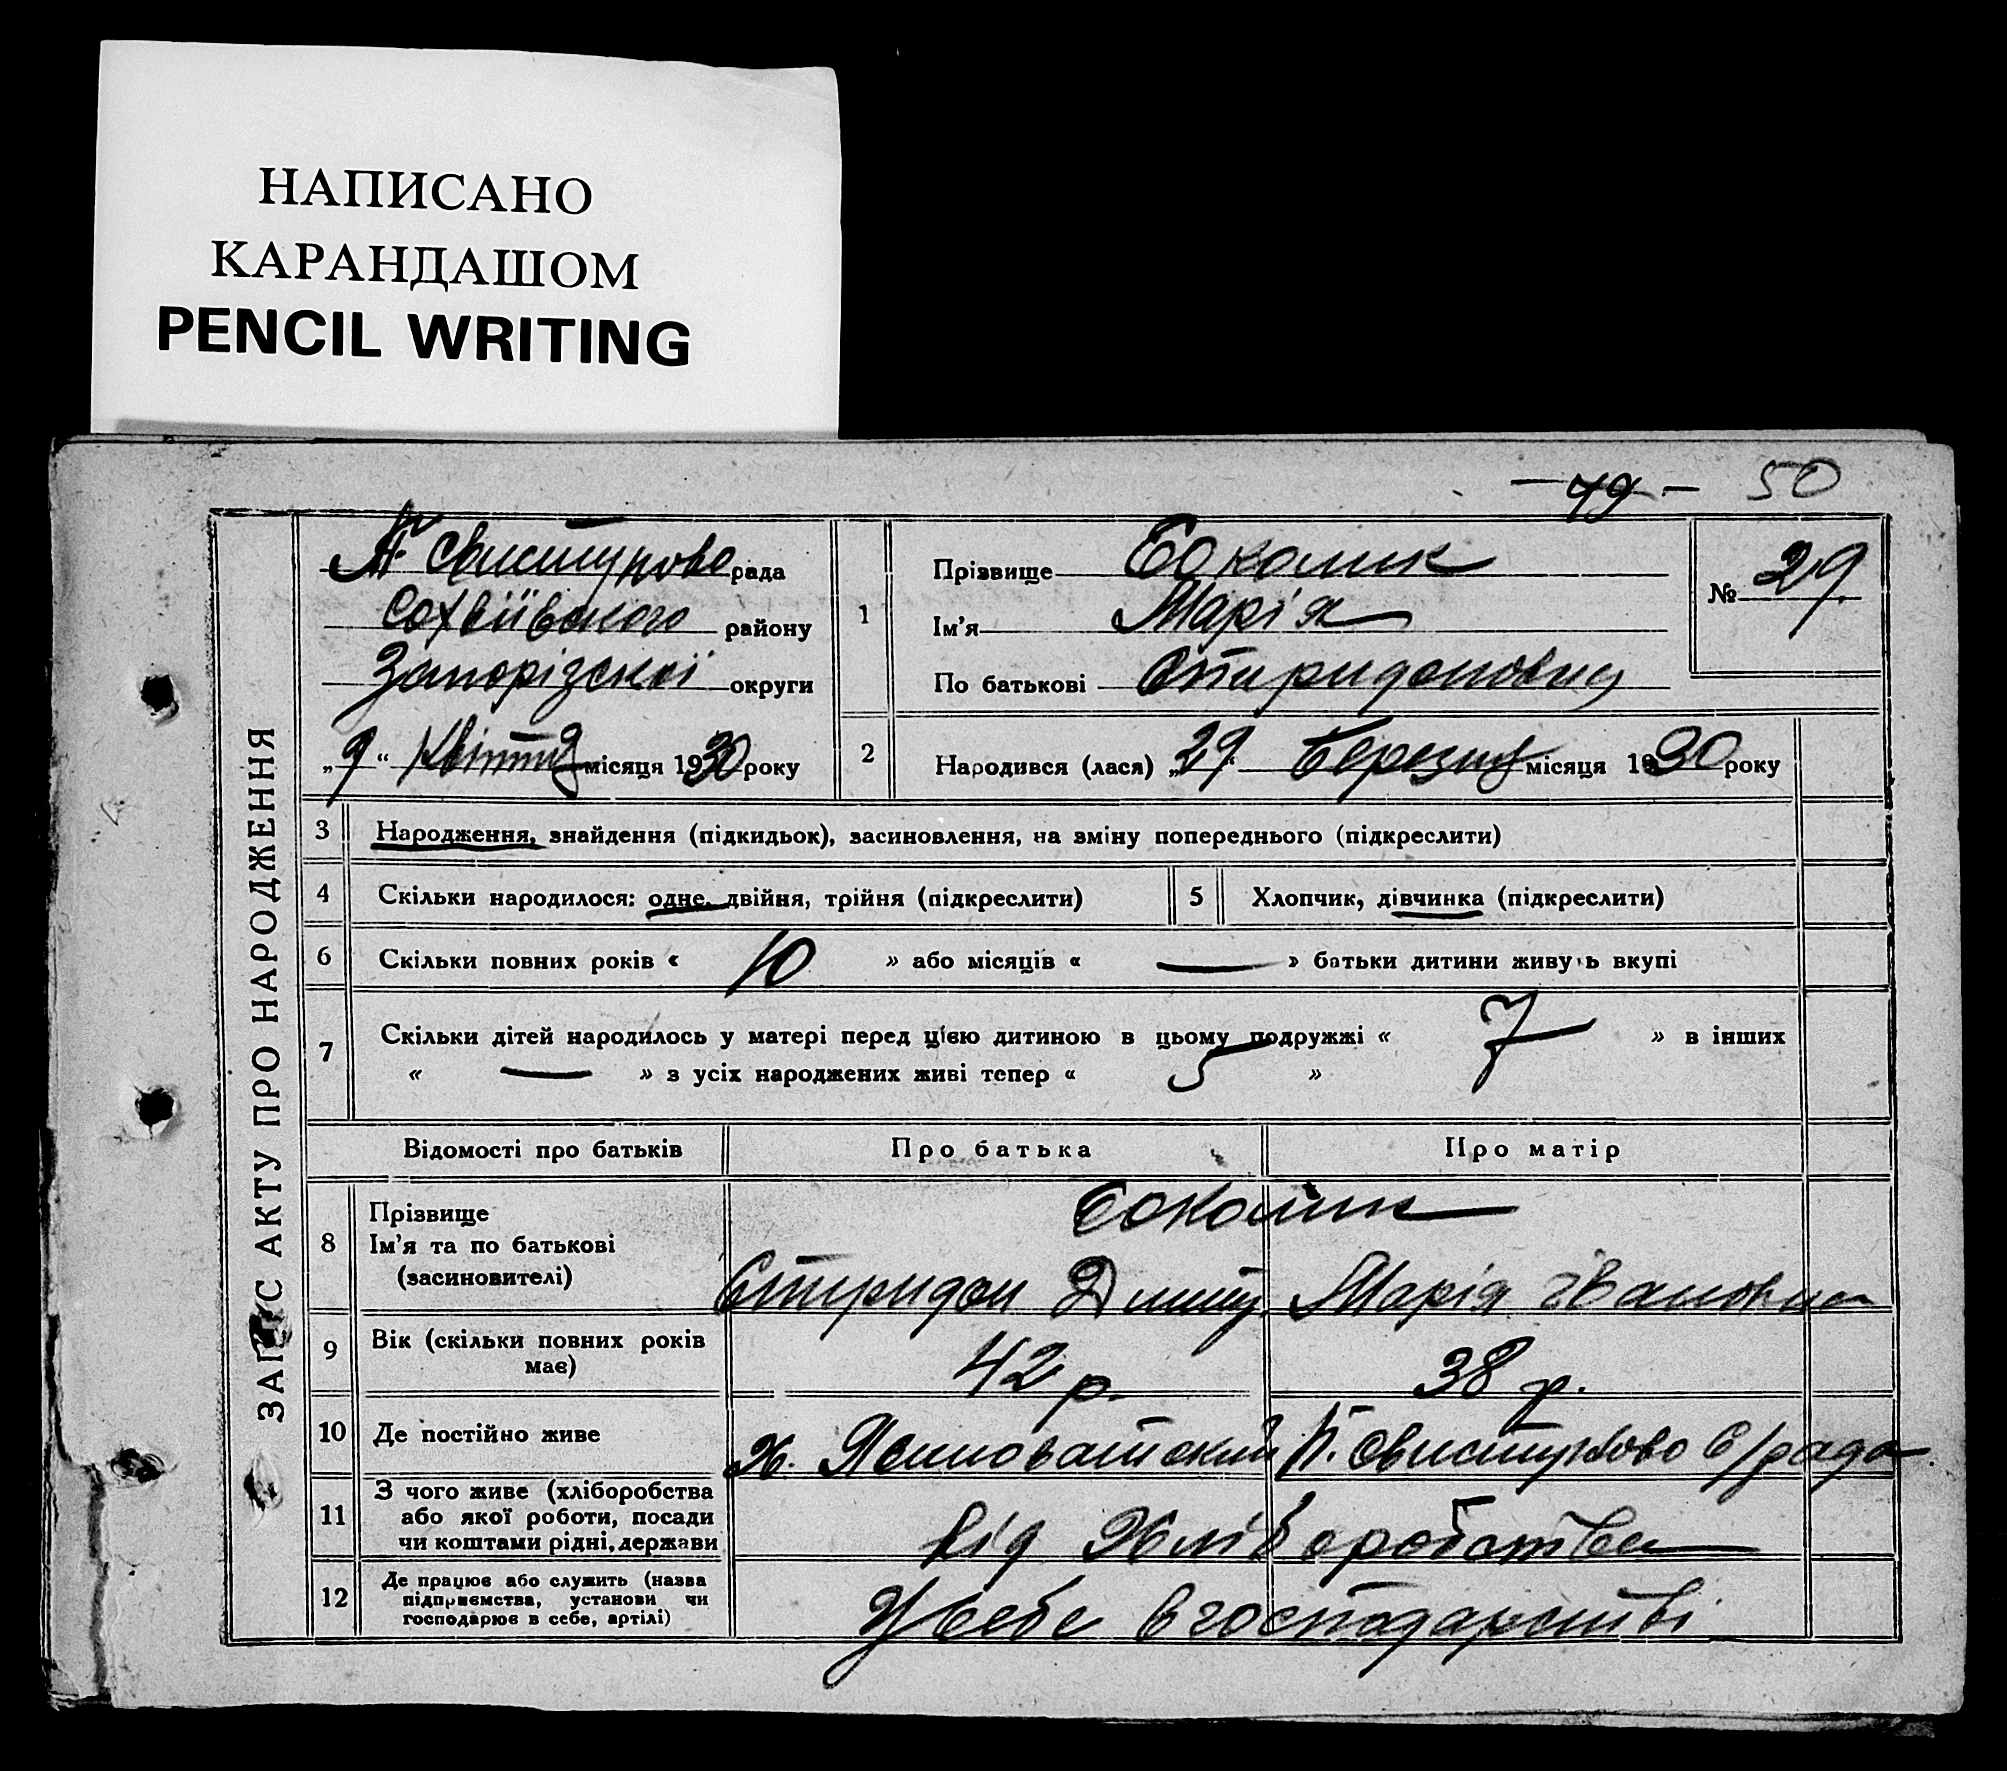 НАПИСАНО
КАРАНДАШОМ
PENCIL WRITING
— 49 — 50
ЗАПИС АКТУ ПРО НАРОДЖЕННЯ
П. Свистуново рада
Софіївського району
Запорізскої округи
„9“ Квітня місяця 1930 року
1
Прізвище Соколик
Ім'я Марія
По батькові Спиридоновна
№ 29
2 Народився (лася) „29“ Березня місяця 1930 року
3 Народження, знайдення (підкидьок), засиновлення, на зміну попереднього (підкреслити)
4 Скільки народилося: одне, двійня, трійня (підкреслити)
5 Хлопчик, дівчинка (підкреслити)
6 Скільки повних років « 10 » або місяців « — » батьки дитини живуть вкупі
7 Скільки дітей народилось у матері перед цією дитиною в цьому подружжі « 7 » в інших
« — » з усіх народжених живі тепер « 5 »
Відомості про батьків Про батька Про матір
8 Прізвище
Ім'я та по батькові
(засиновителі)
Соколик
Спиридон Дмит. Марія Івановна
9 Вік (скільки повних років
має)
42 р. 38 р.
10 Де постійно живе х. Ясиноватский П. Свистуново с/рада
11 З чого живе (хліборобства
або якої роботи, посади
чи коштами рідні, держави
від Хліборобства
12 Де працює або служить (назва
підприємства, установи чи
господарює в себе, артілі)
У себе в господарстві